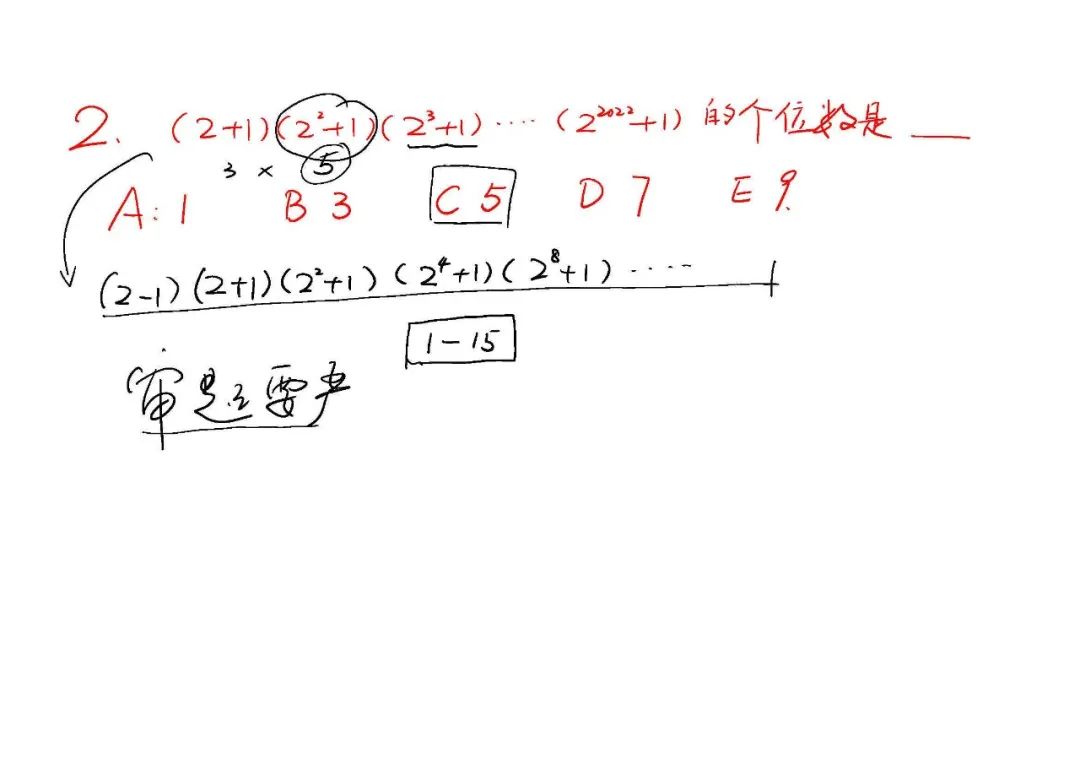 2. (2+1)(2²+1)(2³+1)····(2²⁰²²+1) 的个位数是 ___
3 × 5
A: 1 B 3 C 5 D 7 E 9.
(2-1)(2+1)(2²+1)(2⁴+1)(2⁸+1)·····
1-15
审题要严